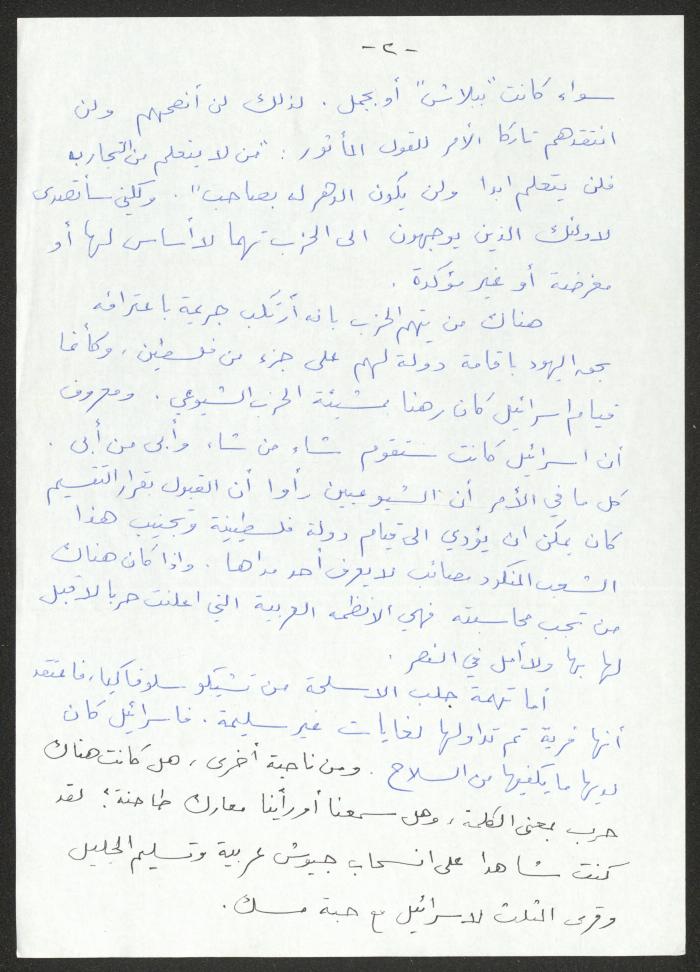 -٢-
سواء كانت "ببلاش" أو بجمل. لذلك لن أنصحهم ولن
انتقدهم تاركا الأمر للقول المأثور: "من لا يتعلم من التجارب
فلن يتعلم ابدا ولن يكون الدهر له بصاحب". ولكني سأتصدى
لاولئك الذين يوجهون الى الحزب تهما لا أساس لها أو
مغرضة أو غير مؤكدة.
هناك من يتهم الحزب بانه أرتكب جريمة باعترافه
بحق اليهود باقامة دولة لهم على جزء من فلسطين، وكأنما
قيام اسرائيل كان رهنا بمشيئة الحزب الشيوعي. ومعروف
أن اسرائيل كانت ستقوم شاء من شاء، وأبى من أبى.
كل ما في الأمر أن الشيوعيين رأوا أن القبول بقرار التقسيم
كان يمكن ان يؤدي الى قيام دولة فلسطينية وتجنيب هذا
الشعب المنكود مصائب لا يعرف أحد مداها. واذا كان هناك
من تجب محاسبته فهي الانظمه العربية التي اعلنت حربا لا قبل
لها بها ولا أمل في النصر.
أما تهمة جلب الاسلحة من تشيكو سلوفاكيا، فاعتقد
أنها فرية تم تداولها لغايات غير سليمة. فاسرائيل كان
لديها ما يكفيها من السلاح. ومن ناحية أخرى، هل كانت هناك
حرب بمعنى الكلمة، وهل سمعنا أو رأينا معارك طاحنة؟ لقد
كنت شاهدا على انسحاب جيوش عربية وتسليم الجليل
وقرى المثلث لاسرائيل مع حبة مسك.